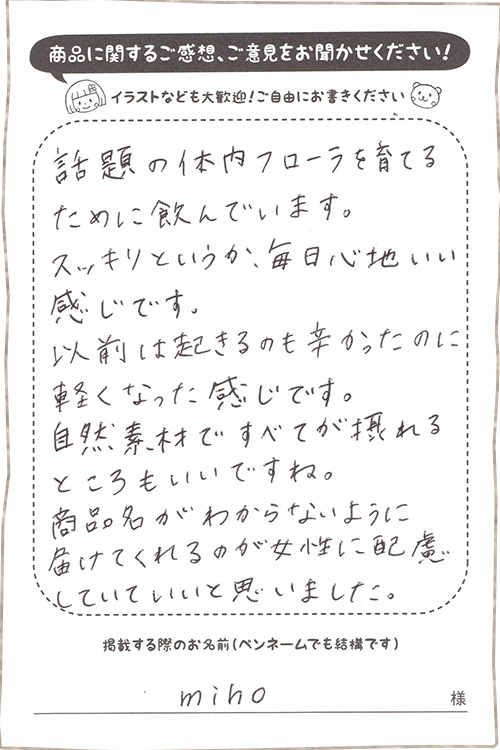 商品に関するご感想、ご意見をお聞かせください!
イラストなども大歓迎!ご自由にお書きください
話題の体内フローラを育てる
ために飲んでいます。
スッキリというか、毎日心地いい
感じです。
以前は起きるのも辛かったのに
軽くなった感じです。
自然素材ですべてが摂れる
ところもいいですね。
商品名がわからないように
届けてくれるのが女性に配慮
していていいと思いました。
掲載する際のお名前(ペンネームでも結構です)
miho 様